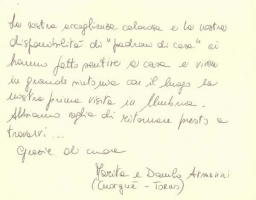 La vostra accoglienza calorosa e la vostra
disponibilità di "padroni di casa" ci
hanno fatto sentire a casa e vivere
in grande sintonia con il luogo la
nostra prima visita in Umbria.
Abbiamo voglia di ritornare presto a
trovarvi ...
Grazie di cuore
Marita e Danilo